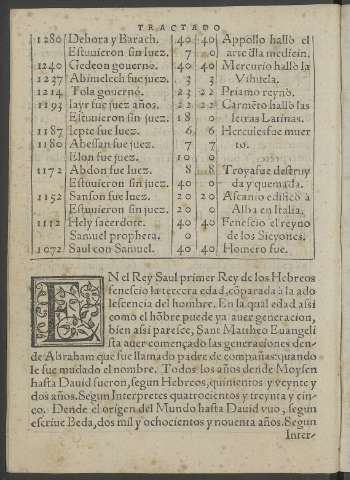 TRACTADO
1280 Debora y Barach. 40 40 Appollo hallò el
Estuuieron sin juez. 7 0 arte dla medicin.
1240 Gedeon gouerno. 40 40 Mercurio hallò la
1237 Abimelech fue juez. 3 3 Vihuela.
1214 Tola gouernó. 23 22 Priamo reynò.
1193 Iayr fue juez años. 22 22 Carmẽto hallò las
Estuuieron sin juez. 18 0 letras Latinas.
1187 Iepte fue Iuez. 6 6 Hercules fue muer
1180 Abessan fue juez. 7 7 to.
Elon fue juez. 10 0
1172 Abdon fue Iuez. 8 8 Troya fue destruy
Estuuieron sin juez. 40 0 da y quemada.
1152 Sanson fue Iuez. 20 20 Ascanio edificò a
Estuuieron sin juez. 20 0 Alba en Italia.
1112 Hely sacerdote. 40 40 Fenescio el reyno
Samuel propheta. 0 0 de los Sicyones.
1072 Saul con Samuel. 40 40 Homero fue.
EN el Rey Saul primer Rey de los Hebreos
fenescio la tercera edad, cõparada à la ado
lescencia del hombre. En la qual edad assi
como el hõbre puede ya auer generacion,
bien assi paresce, Sant Mattheo Euangeli
sta auer començado las generaciones den-
de Abraham que fue llamado padre de compañas: quando
le fue mudado el nombre. Todos los años dende Moysen
hasta Dauid fueron, segun Hebreos, quinientos y veynte y
dos años. Segun Interpretes quatrocientos y treynta y cin-
co. Dende el origen del Mundo hasta Dauid vuo, segun
escriue Beda, dos mil y ochocientos y nouenta años. Segun
Inter-